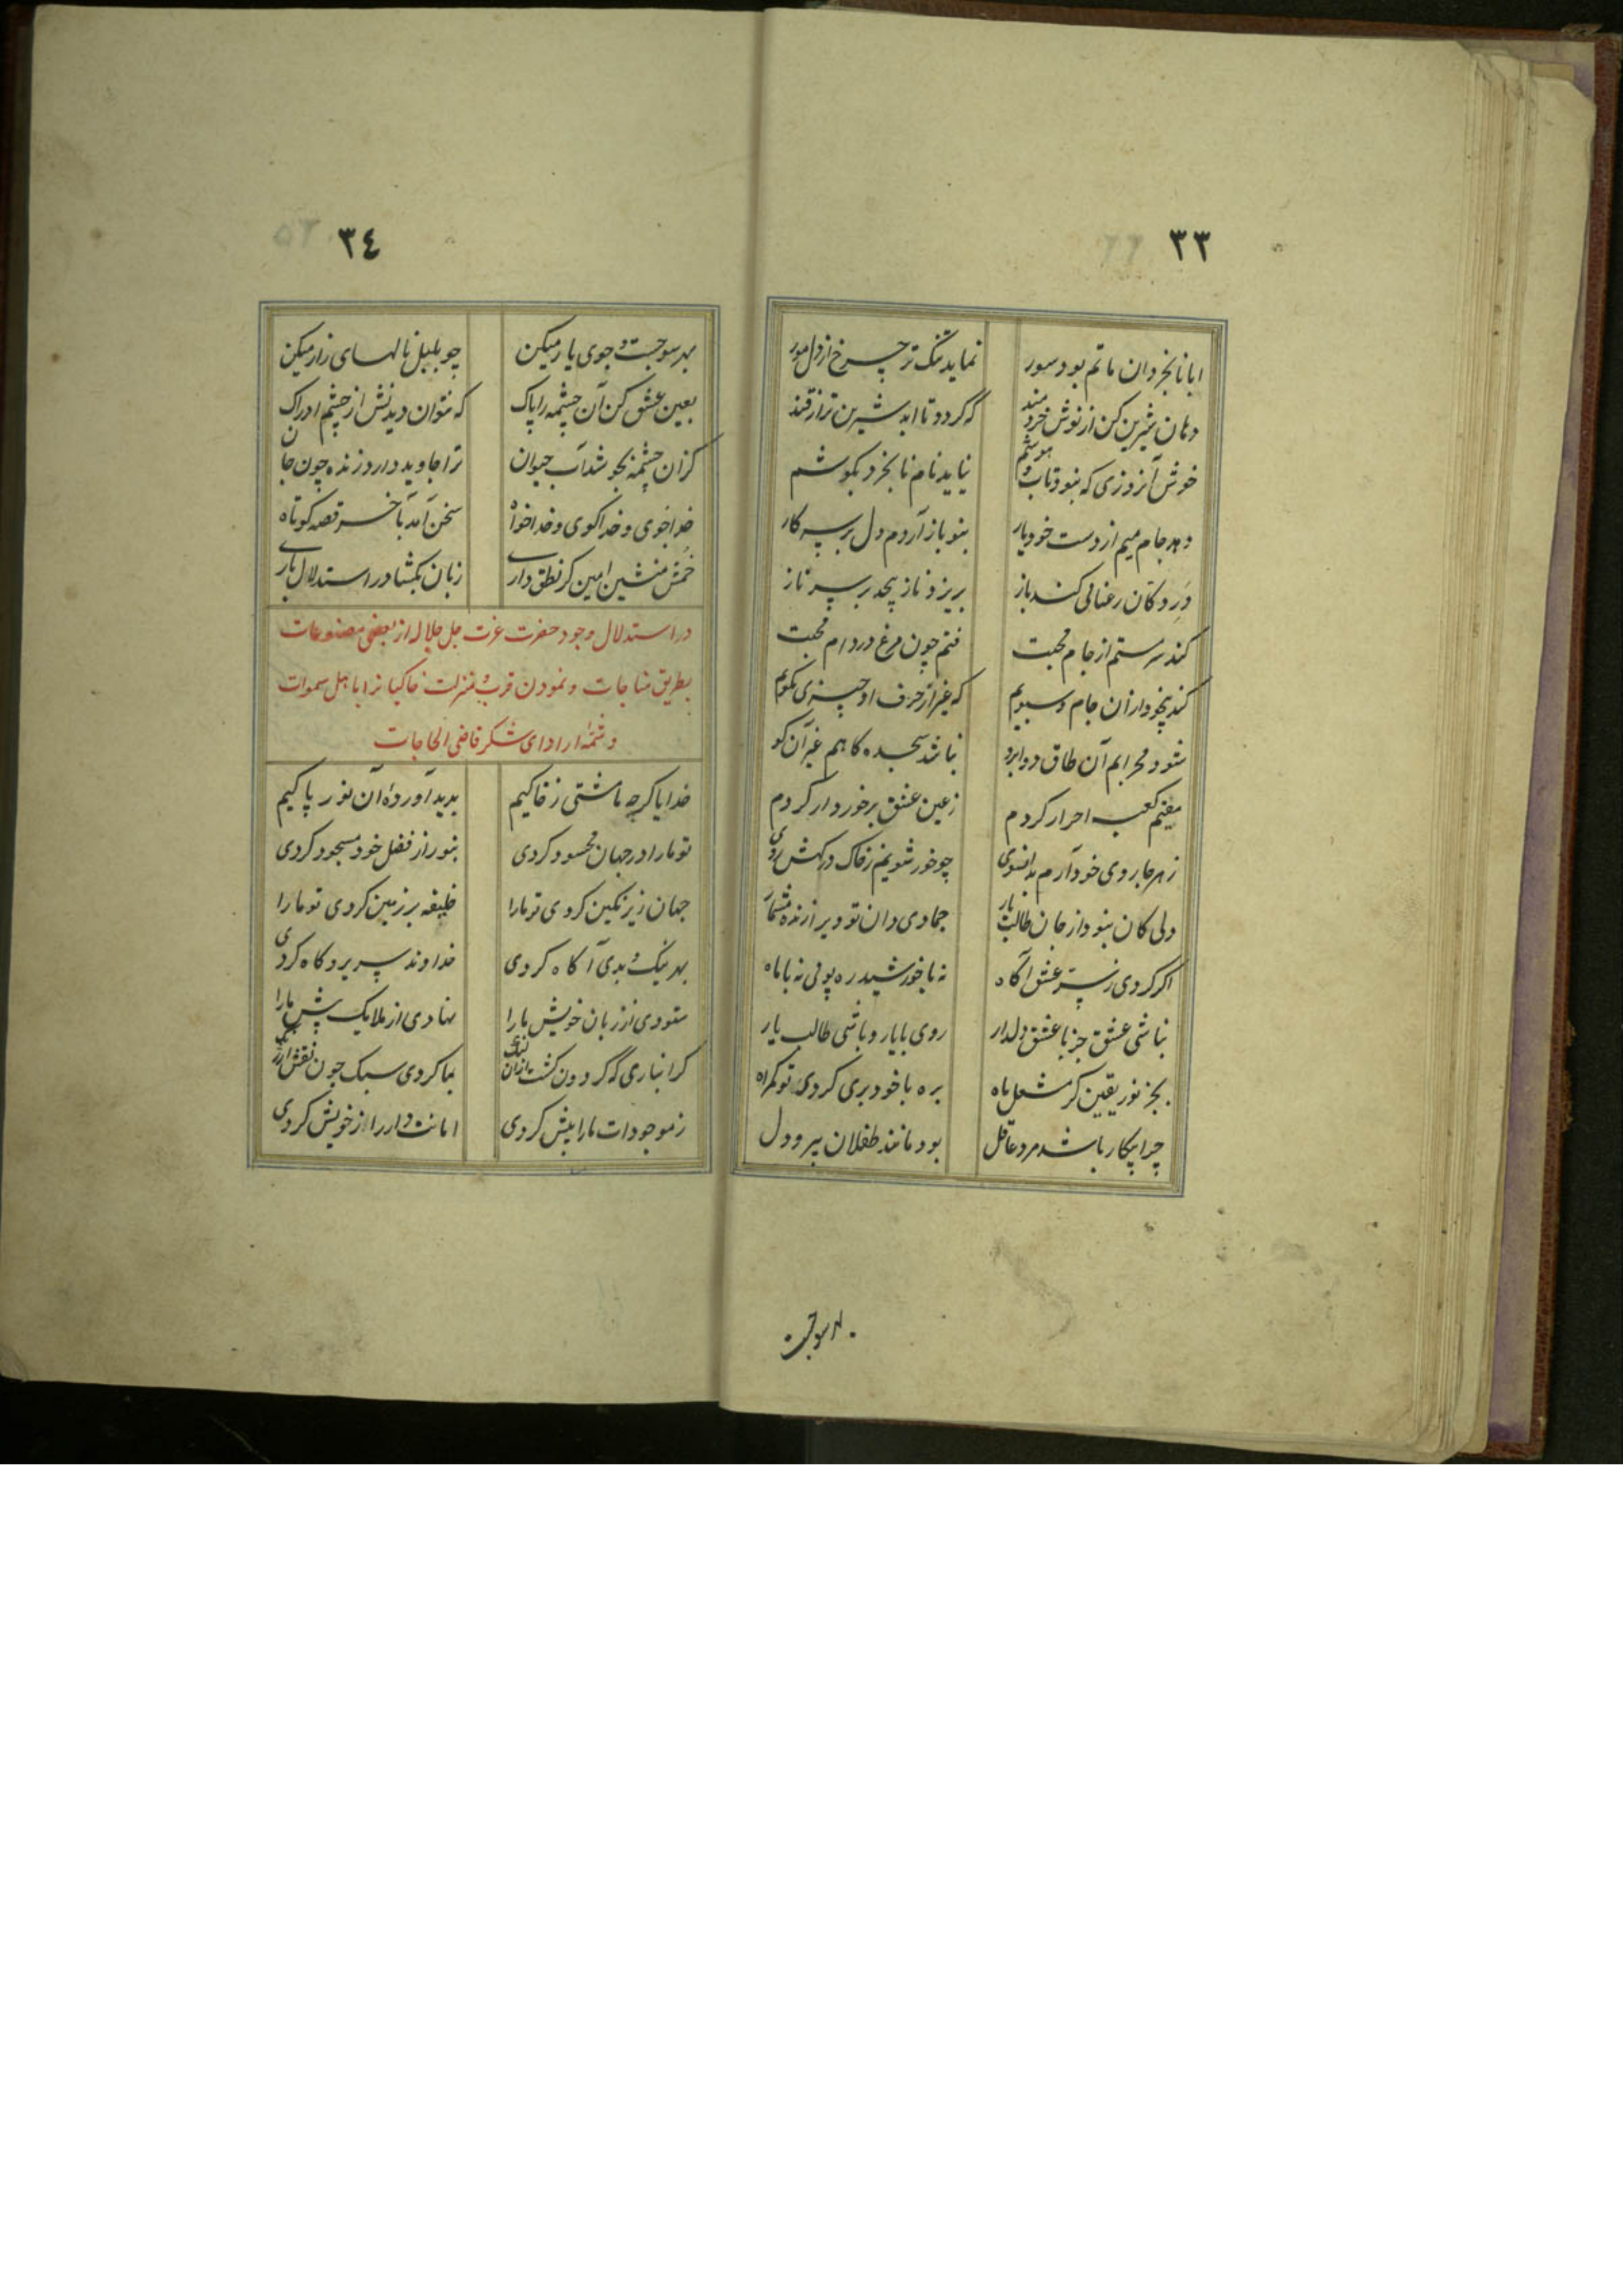 ٣٣
ابا نابخردان ماتم بود سور نماید تنگ تر چرخ از دل مور
دهان شیرین کن از نوش خردمند که گردد تا ابد شیرین تر از قند
خوش آنروزی که نبود تاب و هوشم نیاید نام نابخرد بگوشم
دهد جام میم از دست خود یار بنو باز آردم دل بر سر کار
در دکان رعنائی کند باز بریزد ناز بیحد بر سر ناز
کند سرمستم از جام محبت فتم چون مرغ در دام محبت
کند بیخود از آن جام و سبویم که غیر از حرف او چیزی نگویم
شود محرابم آن طاق دو ابرو نباشد سجده گاهم غیر آن کو
مقیم کعبه احرار کردم ز عین عشق برخوردار کردم
ز هر جا روی خود آرم بدانسوی چو خور شویم ز خاک درگهش روی
دلی کان نبود از جان طالب یار جمادی دان تو ویرا زنده مشمار
اگر گردی ز سر عشق آگاه نه با خورشید ره پوئی نه با ماه
نباشی عشق جز با عشق دلدار روی با یار و باشی طالب یار
بجز نور یقین گر مشعل ماه بره با خود بری گردی تو گمراه
چرا بیکار باشد مرد عاقل بود مانند طفلان بیر و دل
بهر سو جست
٣٤
بهر سو جست و جوی یار میکن چو بلبل نالهای زار میکن
بعین عشق کن آن چشمه را پاک که نتوان دیدنش از چشم ادراک
کزان چشمه بجوشد آب حیوان ترا جاوید دارد زنده چون جان
خداجوی و خداگوی و خداخواه سخن آمد بآخر قصه کوتاه
خمش منشین امین گر نطق داری زبان بگشا در استدلال باری
در استدلال وجود حضرت عزت جل جلاله از بعضی مصنوعات
بطریق مناجات و نمودن قرب و منزلت خاکیانرا با اهل سموات
و شمه‌ٔ از ادای شکر قاضی الحاجات
خدایا گرچه ما مشتی ز خاکیم پدید آورده آن نور پاکیم
تو ما را در جهان محسود کردی بنور از فضل خود مسجود کردی
جهان زیر نگین کردی تو ما را خلیفه بر زمین کردی تو ما را
بهر نیک و بدی آگاه کردی خداوند سریر و گاه کردی
ستودی از زبان خویش ما را نهادی از ملایک پیش ما را
گرانباری که گردون گشت ازان تنگ بما کردی سبک چون نقش
ز موجودات ما را بیش کردی امانت دار راز خویش کردی